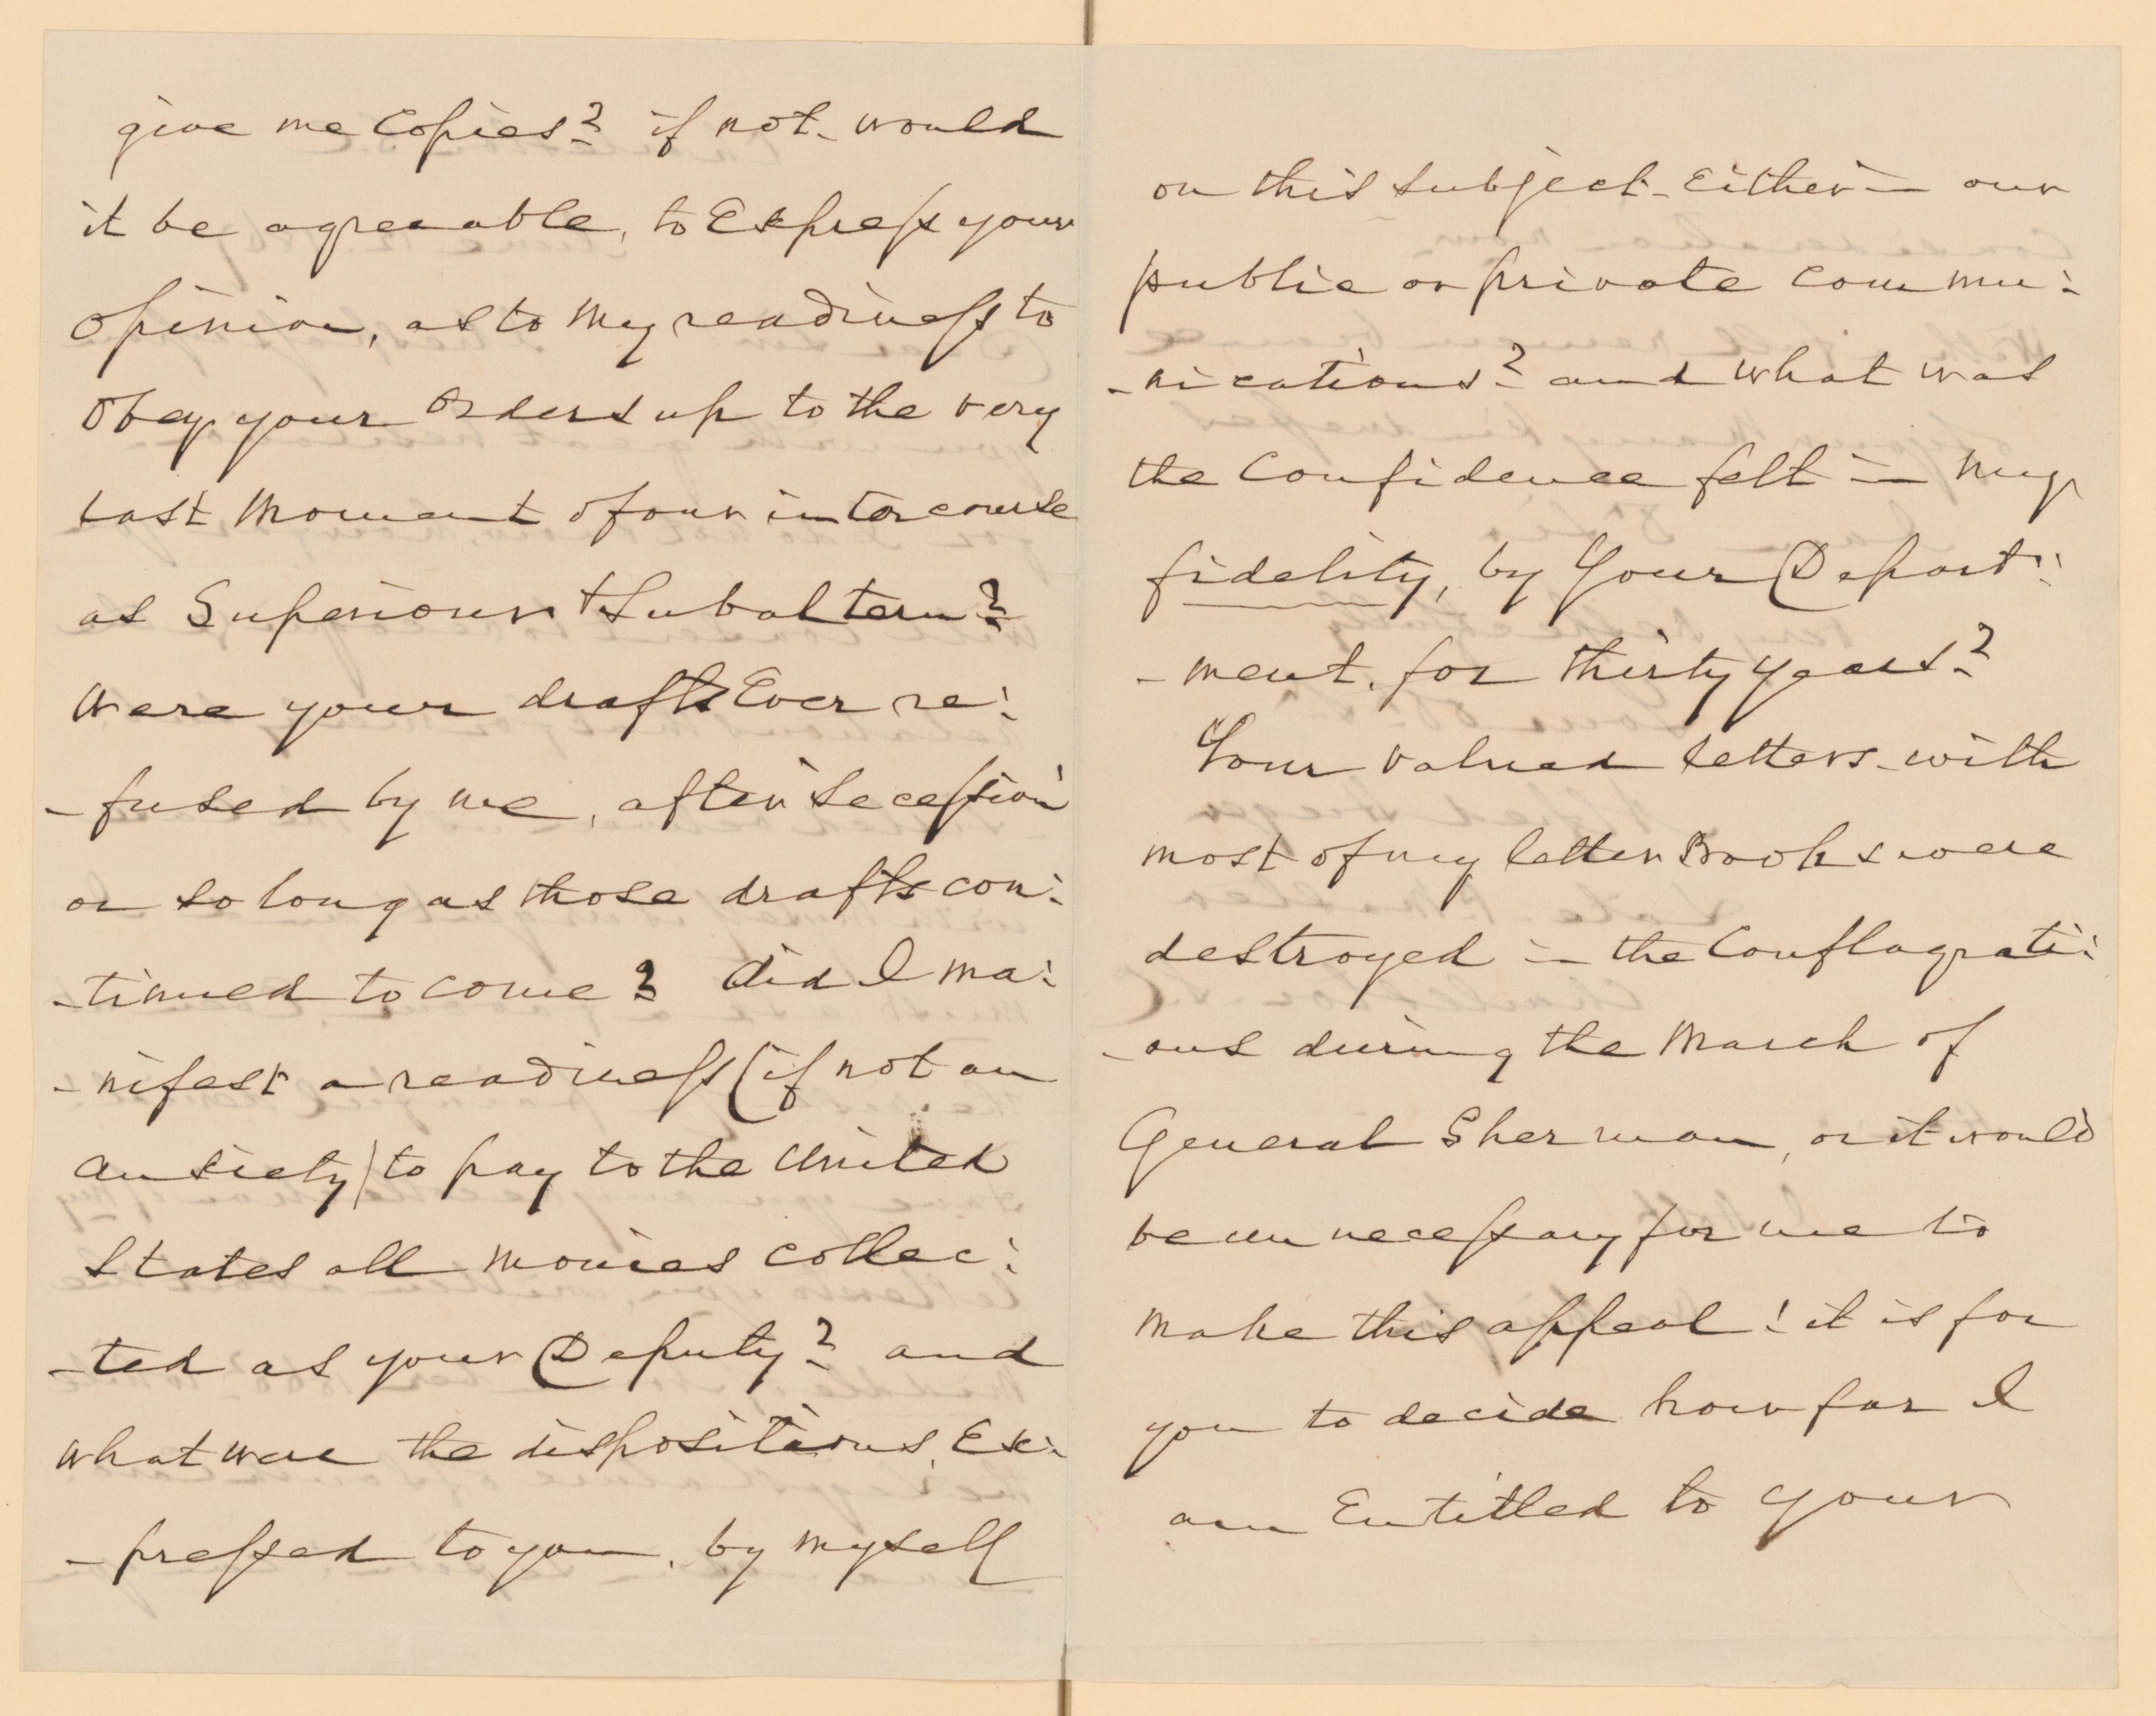 give me Copies? if not - would
it be agreeable, to Express your
Opinion, as to my readiness to
Obey your Orders up to the very
last moment of our intercourse
as Superiour + Subaltern?
Were your drafts Ever re:
-fused by me, after Secession
or so long as those drafts con:
-tinued to come? did I ma:
-nifest a readiness (if not an
anxiety) to pay to the United
States all monies collec:
-ted as your Deputy? and
what were the dispositions, Ex:
-pressed to you, by myself
on this subject - Either in our
public or private commu:
-nications? and what was
the Confidence felt in my
fidelity, by Your Depart:
-ment, for thirty years?
Your valued letters - with
most of my letter Books were
destroyed in the Conflagrati:
-ons during the March of
General Sherman, or it would
be unnecessary for me to
make this appeal! it is for
you to decide how far I
am Entitled to your